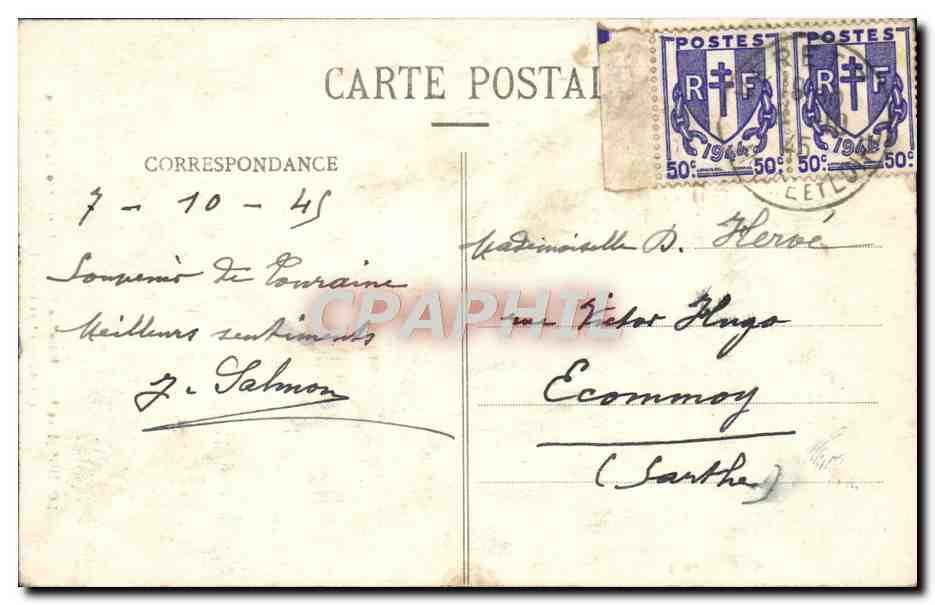 CARTE POSTAL
POSTES POSTES
R F R F
1944 1944
50c 50c 50c 50c
CORRESPONDANCE
7 - 10 - 45
Souvenir de Touraine
Meilleurs sentiments
J. Salmon
Mademoiselle D. Hervé
rue Victor Hugo
Ecommoy
(Sarthe)
CPARPHIL